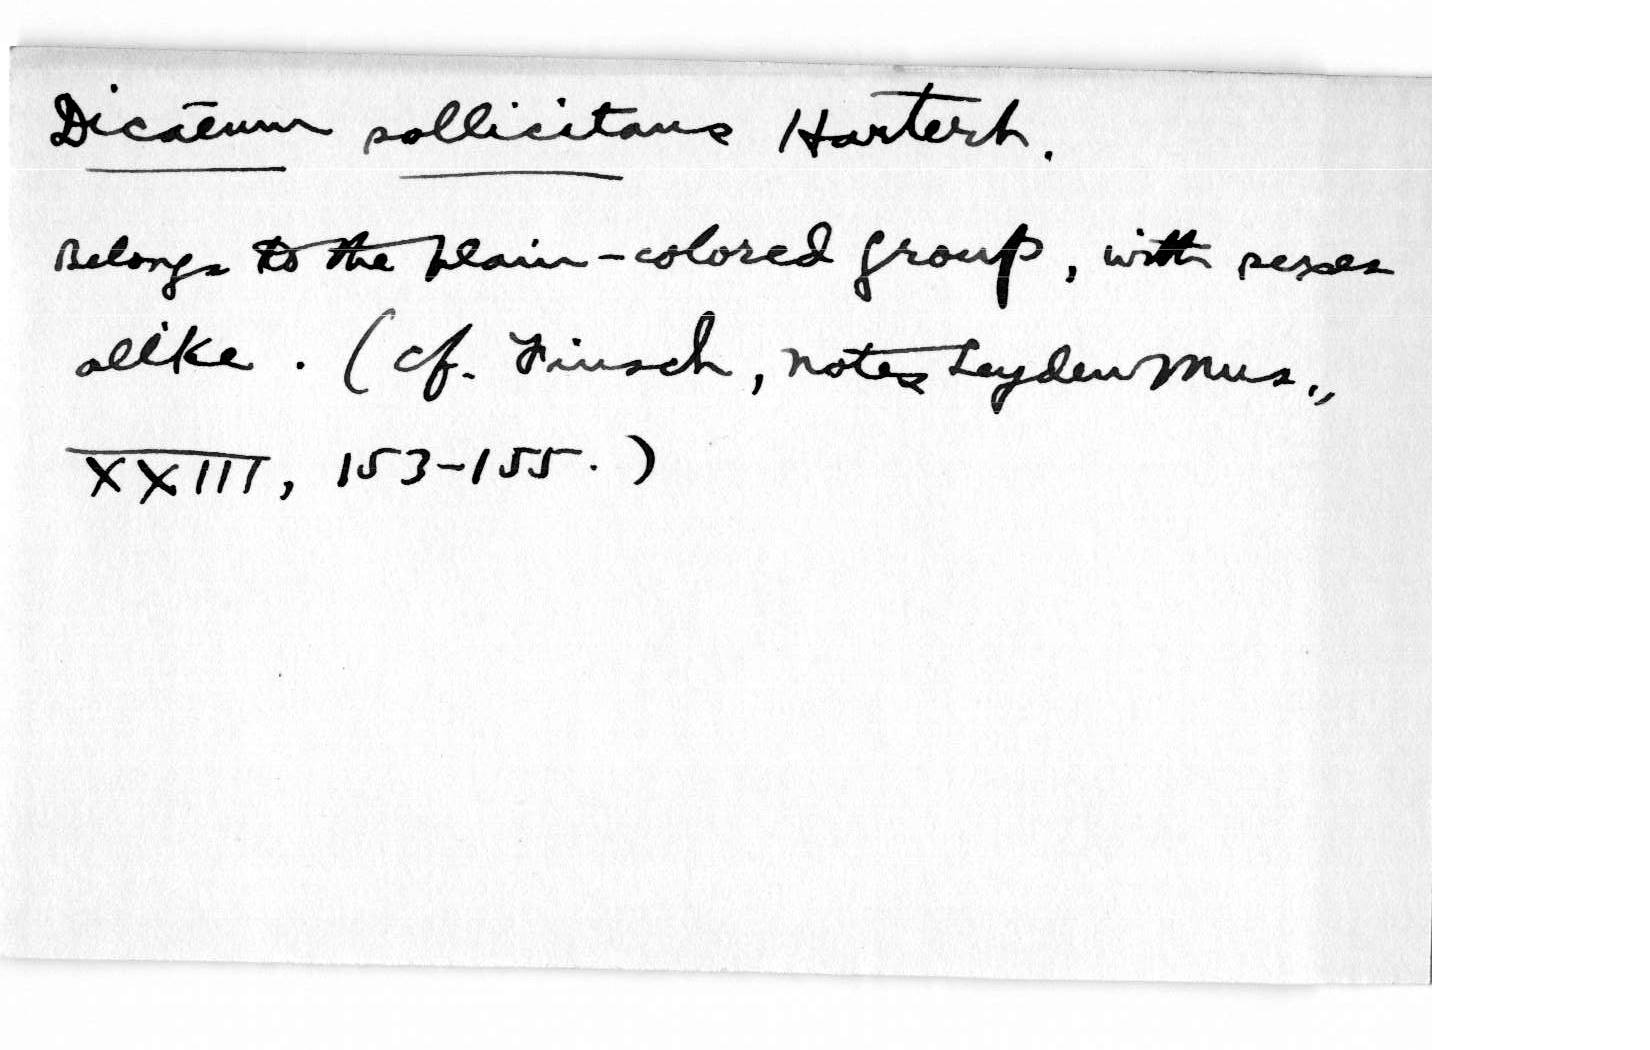 Dicaeum sollicitans Hartert.
Belongs to the plain-colored group, with sexes
alike. (cf. Finsch, Notes Leyden Mus.,
XXIII, 153-155.)